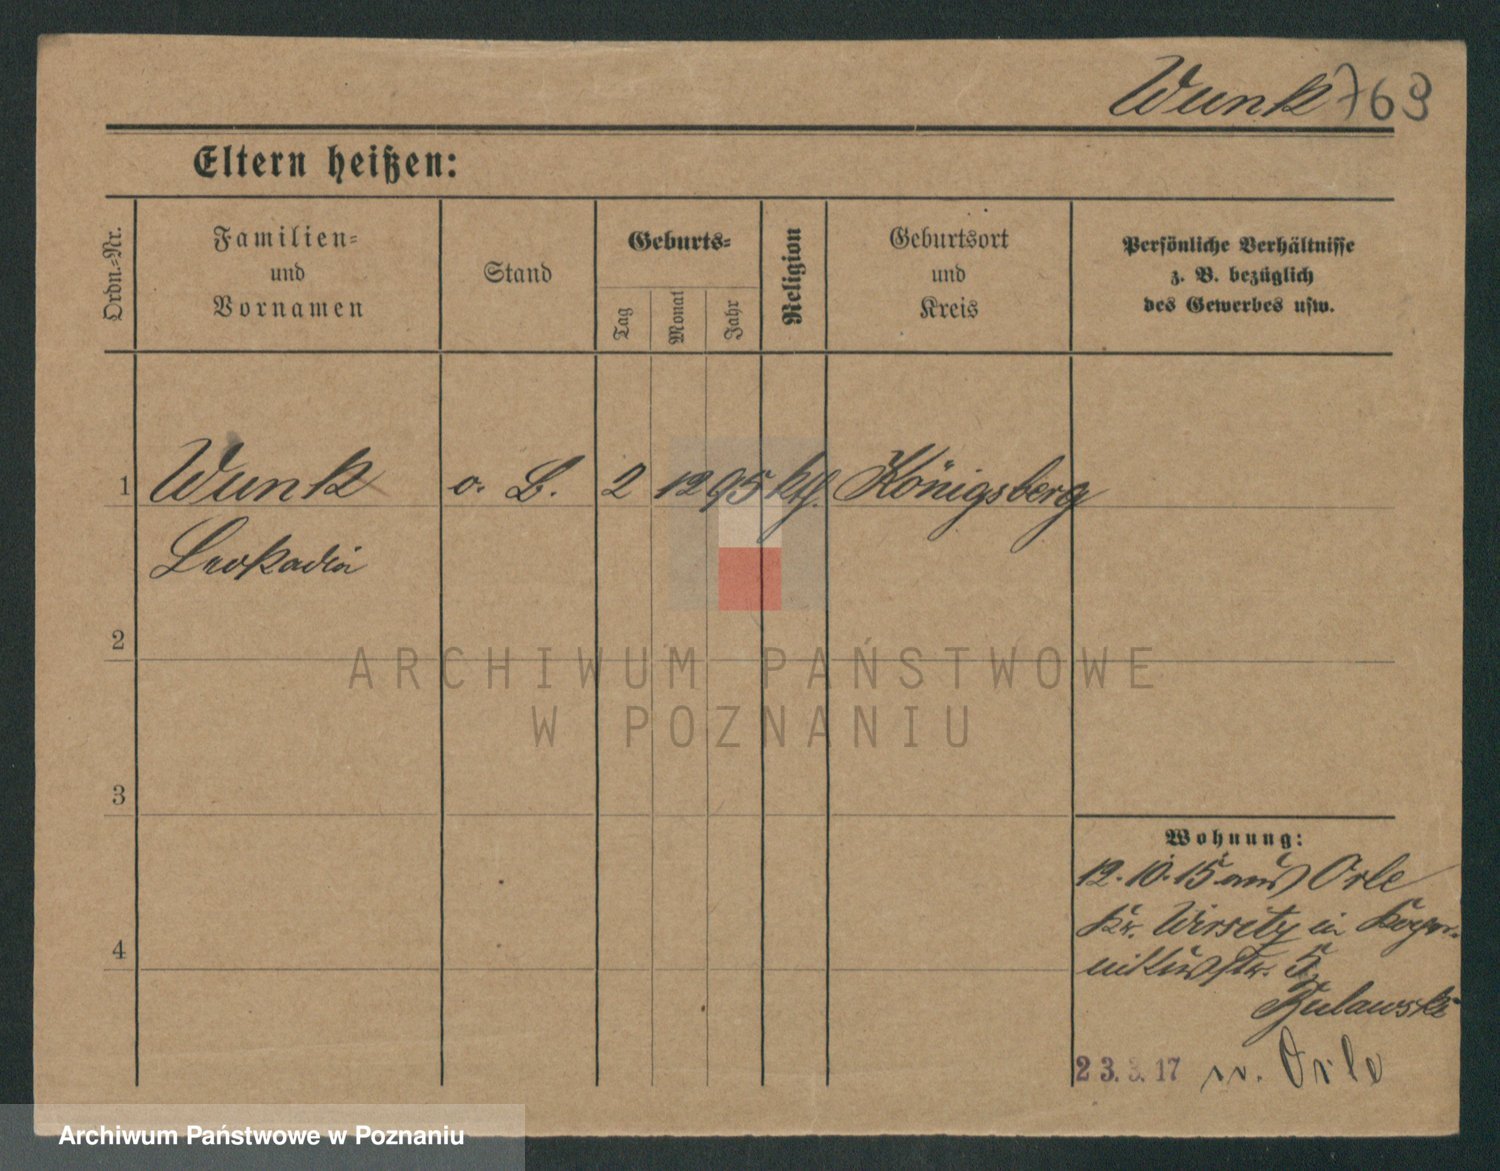 Wunk 763
Eltern heißen:
Ordn.-Nr.
Familien-
und
Vornamen
Stand
Geburts-
Tag
Monat
Jahr
Religion
Geburtsort
und
Kreis
Persönliche Verhältnisse
z. B. bezüglich
des Gewerbes usw.
1 Wunk o. B. 2 12 95 kth. Königsberg
Leokadia
2
3
4
Wohnung:
12.10.15 aus Orle
Kr. Wirsitz in Koper-
nikusstr. 5
Zulawski
23.3.17 n. Orle
ARCHIWUM PAŃSTWOWE
W POZNANIU
Archiwum Państwowe w Poznaniu